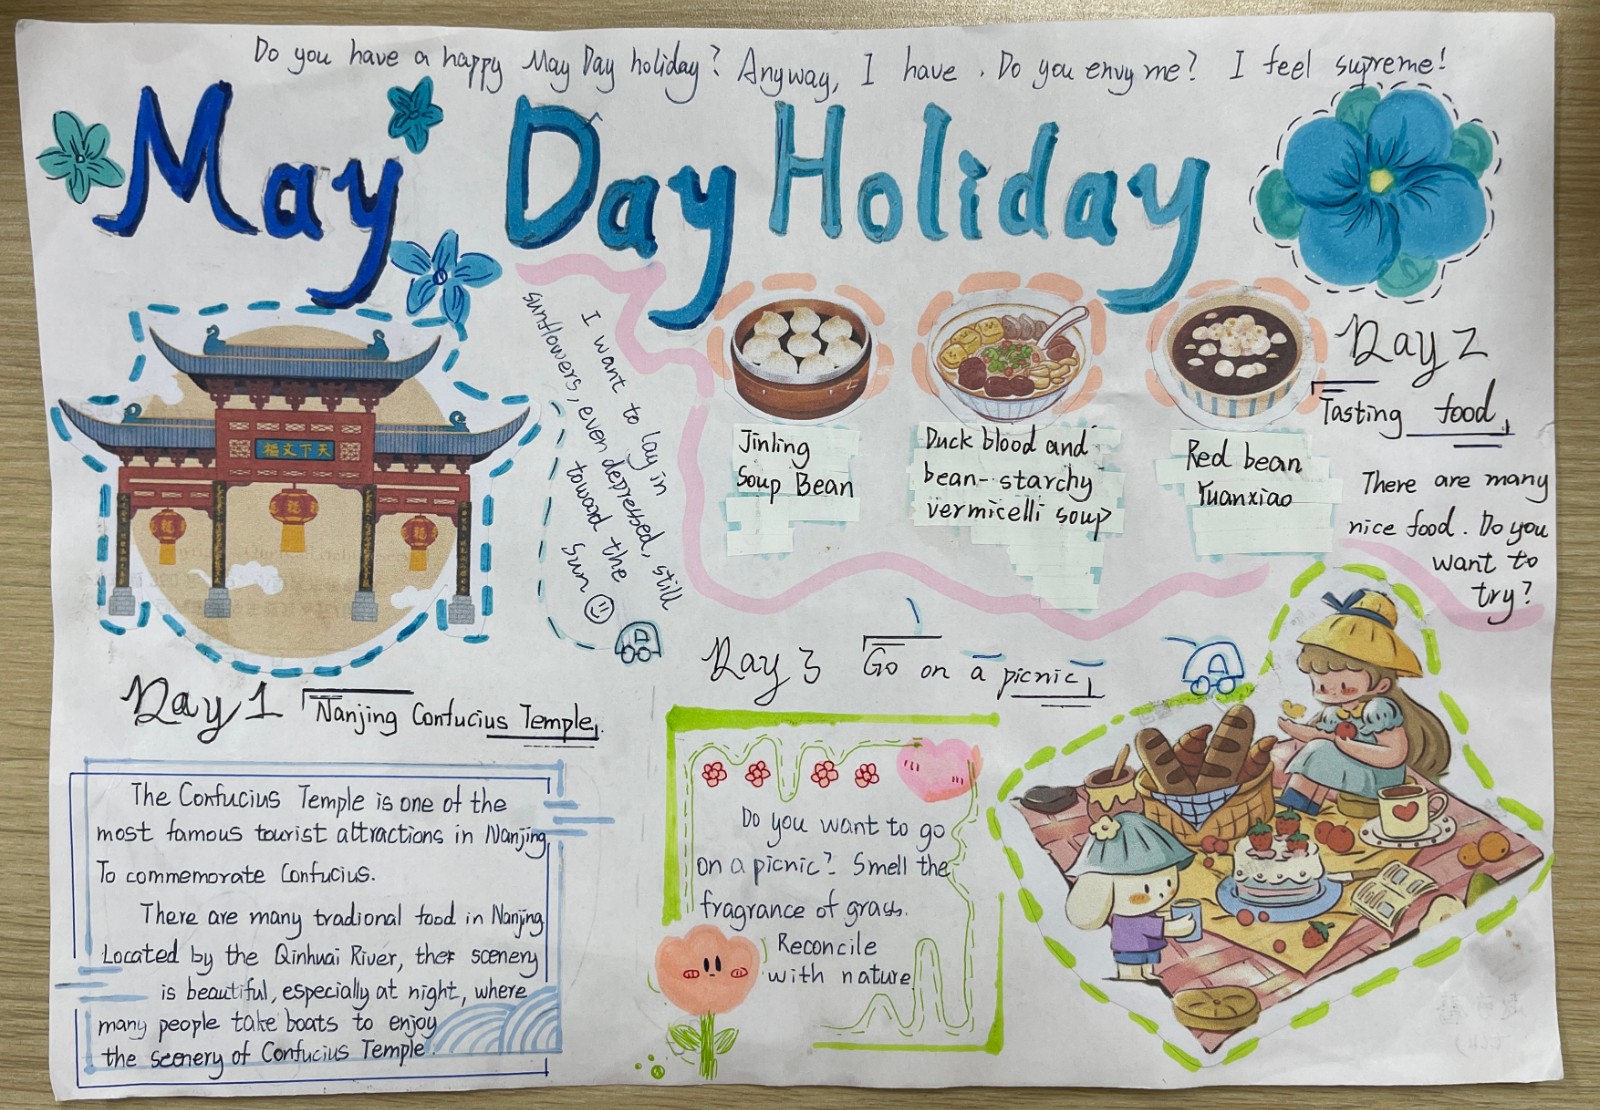 Do you have a happy May Day holiday? Anyway, I have. Do you envy me? I feel supreme!
May Day Holiday
天下文樞
I want to lay in
sunflowers, even depressed, still
toward the
sun
Jinling
Soup Bean
Duck blood and
bean-starchy
vermicelli soup
Red bean
Yuanxiao
Day 2
Tasting food
There are many
nice food. Do you
want to
try?
Day 1 Nanjing Confucius Temple
The Confucius Temple is one of the
most famous tourist attractions in Nanjing
To commemorate Confucius.
There are many tradional food in Nanjing
Located by the Qinhuai River, the scenery
is beautiful, especially at night, where
many people take boats to enjoy
the scenery of Confucius Temple.
Day 3 Go on a picnic
Do you want to go
on a picnic? Smell the
fragrance of grass.
Reconcile
with nature